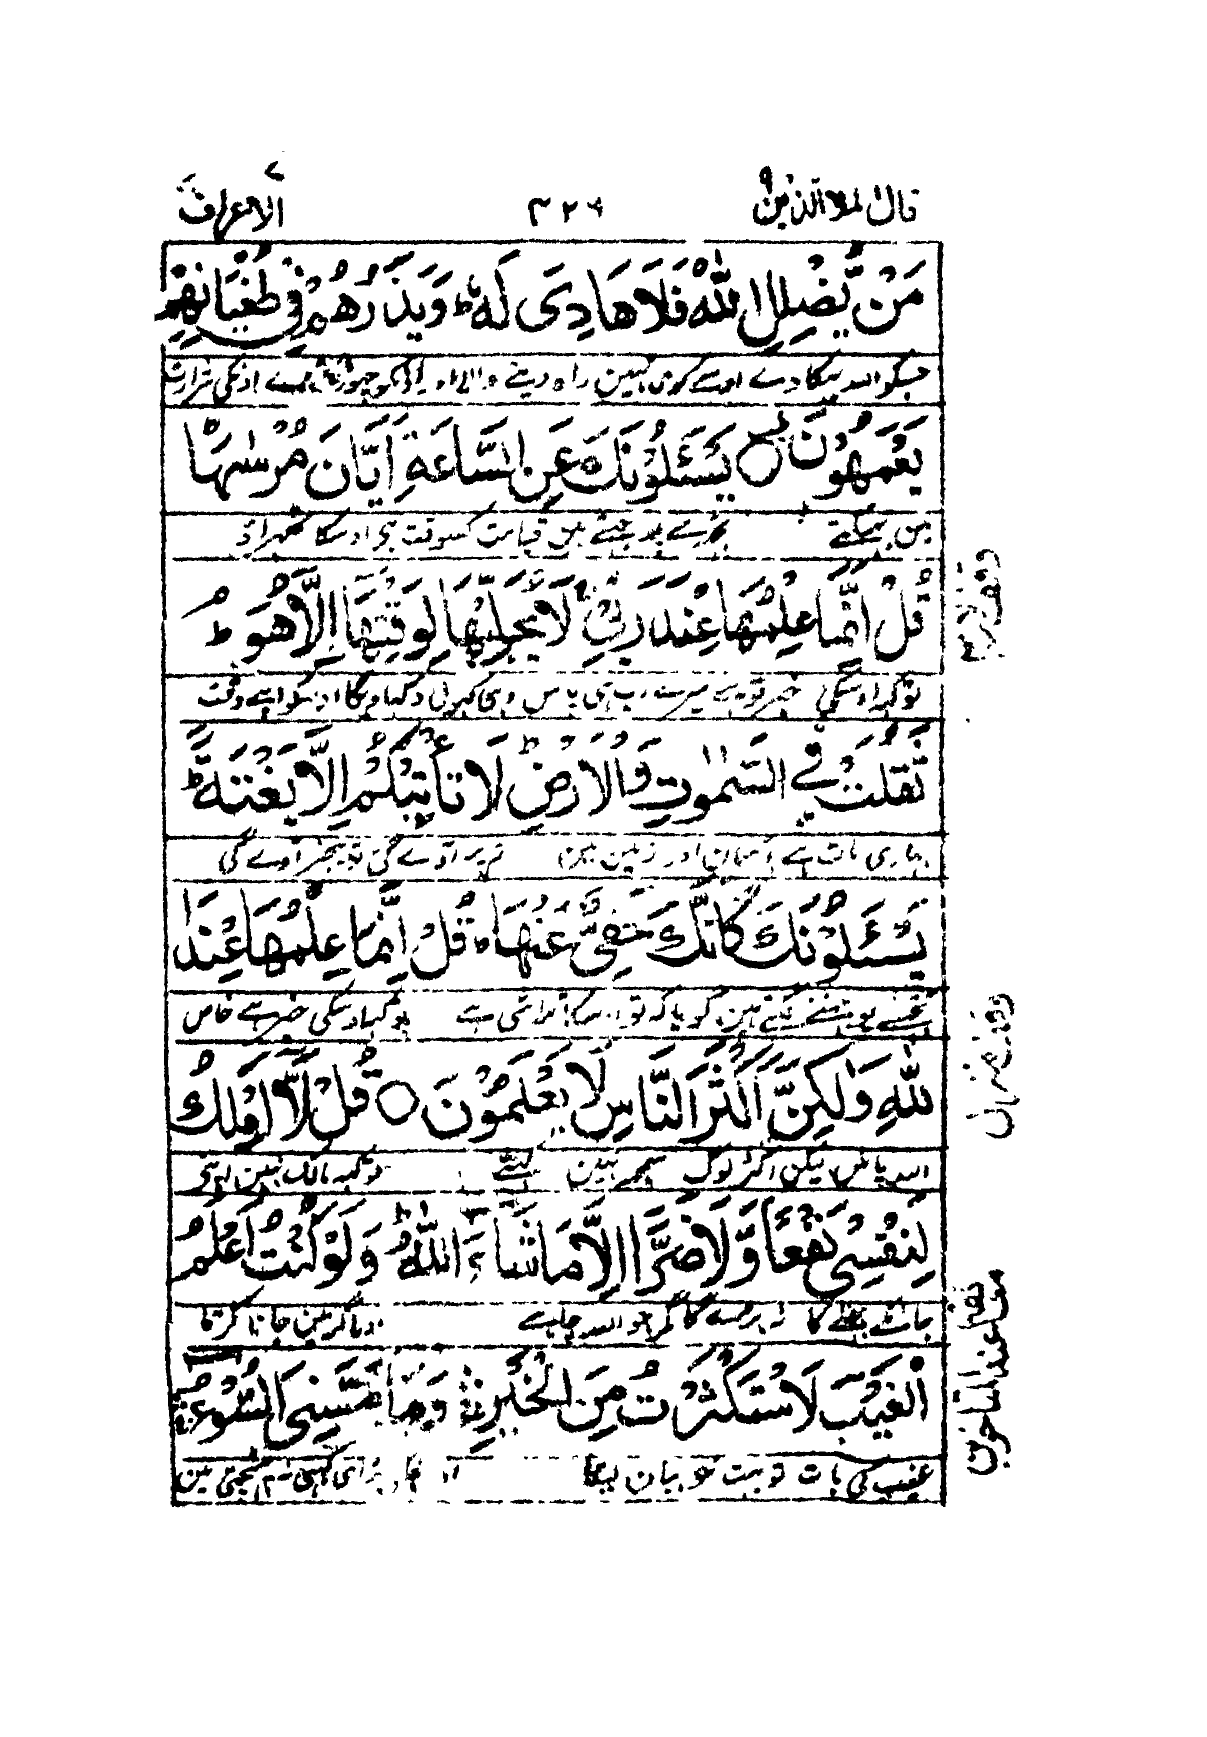 قال الملأ الذين ٩
٣٢٩
الاعراف ٧
مَنْ يُّضْلِلِ اللّٰهُ فَلَا هَادِىَ لَهٗ ؕ وَيَذَرُهُمْ فِىْ طُغْيَانِهِمْ
جسکو اللہ بہکادے اوسے کوئی نہیں راہ دینے والا اور اونکو چھوڑ رکھتا ہے اونکی شرارت
يَعْمَهُوْنَ ○ يَسْـَٔلُوْنَكَ عَنِ السَّاعَةِ اَيَّانَ مُرْسٰىهَا
مین بہکتے تجھسے پوچھتے ہین قیامت کسوقت ہی اوسکا ٹھہراؤ
قُلْ اِنَّمَا عِلْمُهَا عِنْدَ رَبِّىْ ۚ لَا يُجَلِّيْهَا لِوَقْتِهَا اِلَّا هُوَ ؕ
تو کہہ اوسکی خبر تو ہے میرے رب ہی پاس وہی کھول دکھاویگا اوسکو اپنے وقت
ثَقُلَتْ فِى السَّمٰوٰتِ وَالْاَرْضِ ؕ لَا تَاْتِيْكُمْ اِلَّا بَغْتَةً ؕ
بھاری بات ہے آسمان اور زمین مین تمپر آوے گی تو بیخبر آوے گی
يَسْـَٔلُوْنَكَ كَاَنَّكَ حَفِىٌّ عَنْهَا ؕ قُلْ اِنَّمَا عِلْمُهَا عِنْدَ
تجھسے پوچھنے لگتے ہین گویا کہ تو اوسکا تلاشی ہے تو کہہ اوسکی خبر ہے خاص
اللّٰهِ وَلٰكِنَّ اَكْثَرَ النَّاسِ لَا يَعْلَمُوْنَ ○ قُلْ لَّآ اَمْلِكُ
اللہ پاس لیکن اکثر لوگ سمجھ نہین رکھتے تو کہہ مالک نہین اپنی
لِنَفْسِىْ نَفْعًا وَّلَا ضَرًّا اِلَّا مَا شَآءَ اللّٰهُ ؕ وَلَوْ كُنْتُ اَعْلَمُ
جان کے بھلے کا نہ برے کا مگر جو اللہ چاہے اور اگر مین جانا کرتا
الْغَيْبَ لَاسْتَكْثَرْتُ مِنَ الْخَيْرِ ۛ وَمَا مَسَّنِىَ السُّوْٓءُ ۛ
غیب کی بات تو بہت خوبیان لیتا اور مجھکو برائی کبھی نہ پہنچتی مین